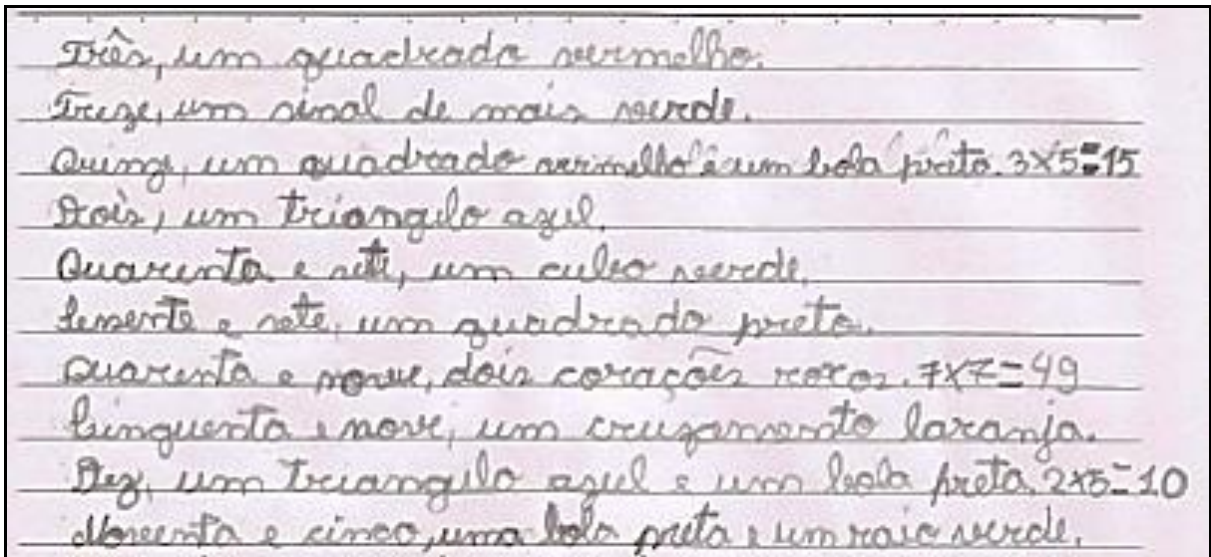 Três, um quadrado vermelho.
Treze, um sinal de mais verde.
Quinze, um quadrado vermelho e um bola preta. 3x5=15
Dois, um triangulo azul.
Quarenta e sete, um cubo verde.
Sessenta e sete, um quadrado preto.
Quarenta e nove, dois corações roxos. 7x7=49
Cinquenta e nove, um cruzamento laranja.
Dez, um triangulo azul e um bola preta. 2x5=10
Noventa e cinco, uma bola preta e um raio verde.